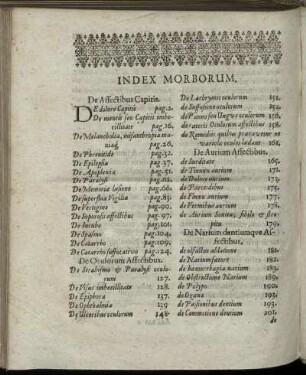 INDEX MORBORUM.
De Affectibus Capitis.
DE dolore Capitis pag. 2.
De mentis seu Capitis imbe-
cillitate pag. 16.
De Melancholia, misanthropia ma-
nia, pag. 26.
De Phrenitide pag. 32.
De Epilepsia pag. 37.
De Apoplexia pag. 51.
De Paralysi pag. 62.
De Memoria laesione pag. 66.
De superflua Vigilia pag. 83.
De Vertigine pag. 90.
De Soporosis affectibus pag. 97.
De Incubo pag. 101.
De Spasmo pag. 104.
De Catarrho pag. 109.
De Catarrho suffocativo pag. 124.
De Oculorum Affectibus.
De Strabismo & Paralysi oculo-
rum 127.
De Visus imbecillitate 128.
De Epiphora 137.
De Ophthalmia 129.
De Ulceribus oculorum 148
De Lachrymis oculorum 151.
de Suffusione oculorum 252.
de Panno seu Ungue oculorum 156.
de caeteris Oculorum affectibus 158.
de Remediis quibus praecavetur ne
variolae oculos laedant 161.
De Aurium Affectibus.
de Surditate 165.
de Tinnitu aurium 171.
de Dolore aurium 173.
de Parotidibus 175.
de Fœtu aurium 177.
de Vermibus aurium 178.
de Aurium Sonitu, sibilo & stre-
pitu 179.
De Narium dentiumque Af-
fectibus.
de olfactus ablatione 181.
de Narium fœtore 182.
de haemorrhagia narium 183.
de Obstructione Narium 189.
de Polypo 190.
de Ozaena 193.
de Passionibus dentium 193.
de Commotione dentium 201.
de